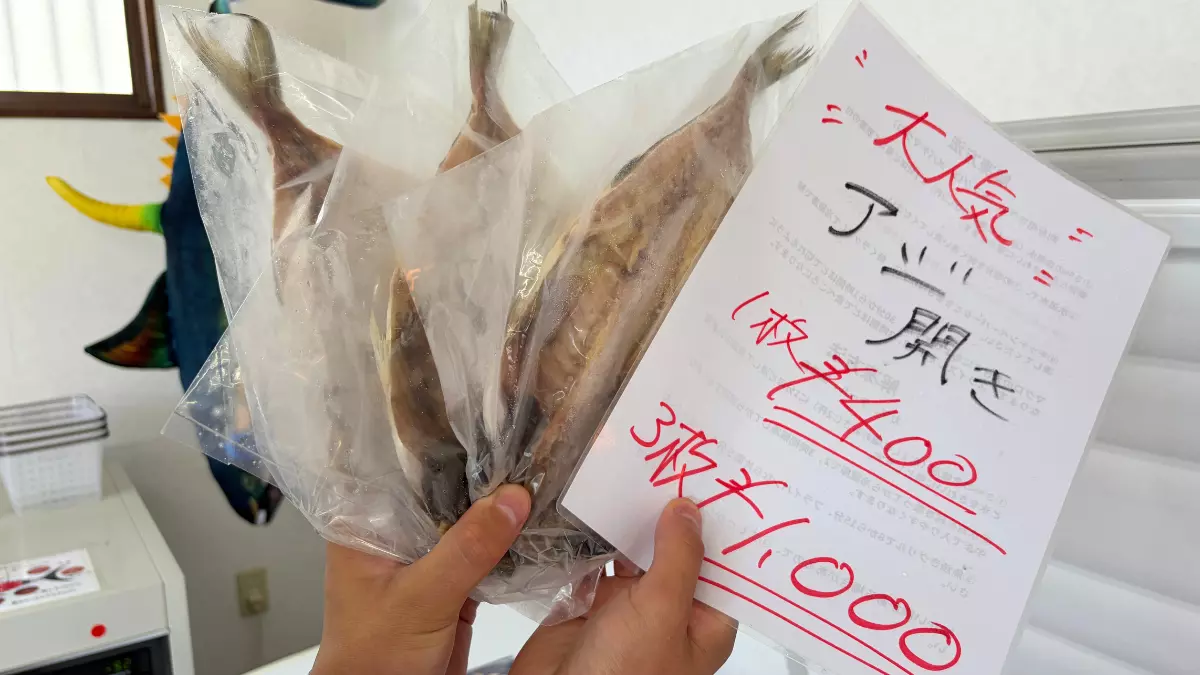 大人気
アジ開き
1枚¥400
3枚¥1,000